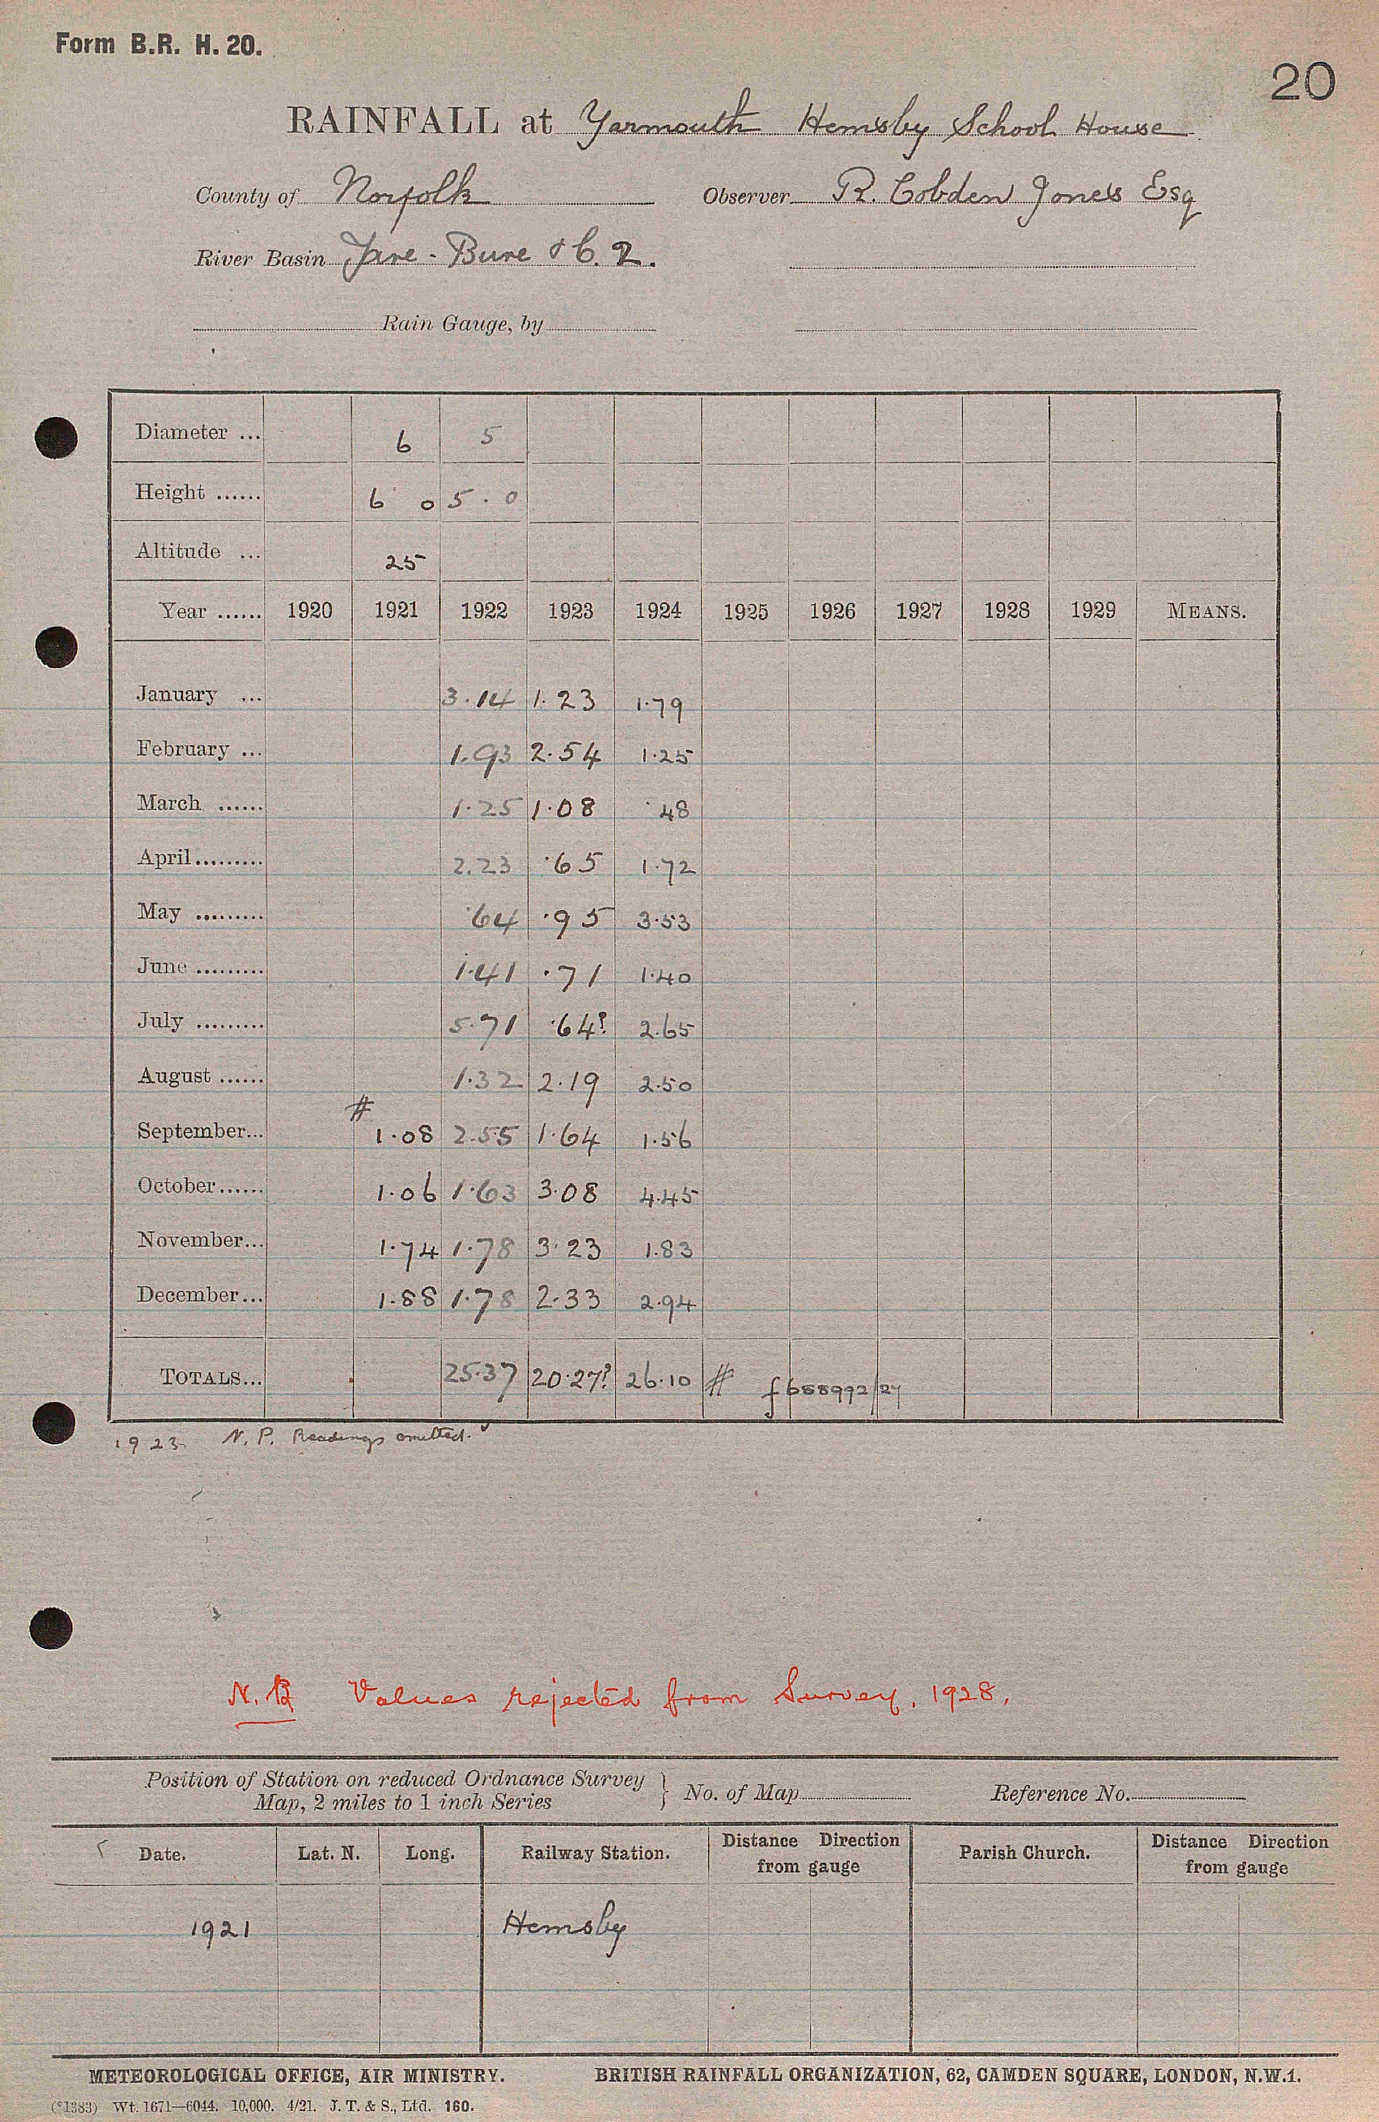 Form B.R. H. 20.
20
RAINFALL at Yarmouth Hemsby School House
County of Norfolk Observer R. Cobden Jones Esq
River Basin Yare - Bure & C. 2.
Rain Gauge, by
Diameter ... 6 5
Height ...... 6 0 5.0
Altitude ... 25
Year ...... 1920 1921 1922 1923 1924 1925 1926 1927 1928 1929 MEANS.
January ... 3.14 1.23 1.79
February ... 1.93 2.54 1.25
March ...... 1.25 1.08 .48
April......... 2.23 .65 1.72
May ......... .64 .95 3.53
June ......... 1.41 .71 1.40
July ......... 5.71 .64? 2.65
August ...... 1.32 2.19 2.50
September... # 1.08 2.55 1.64 1.56
October...... 1.06 1.63 3.08 4.45
November... 1.74 1.78 3.23 1.83
December... 1.88 1.78 2.33 2.94
TOTALS... 25.37 20.27? 26.10 # f 658992/27
1923 N.P. Readings omitted.
N.B Values rejected from Survey, 1928.
Position of Station on reduced Ordnance Survey
Map, 2 miles to 1 inch Series } No. of Map Reference No.
Date. Lat. N. Long. Railway Station. Distance Direction from gauge Parish Church. Distance Direction from gauge
1921 Hemsby
METEOROLOGICAL OFFICE, AIR MINISTRY. BRITISH RAINFALL ORGANIZATION, 62, CAMDEN SQUARE, LONDON, N.W.1.
(*1383) Wt. 1671—6044. 10,000. 4/21. J. T. & S., Ltd. 160.